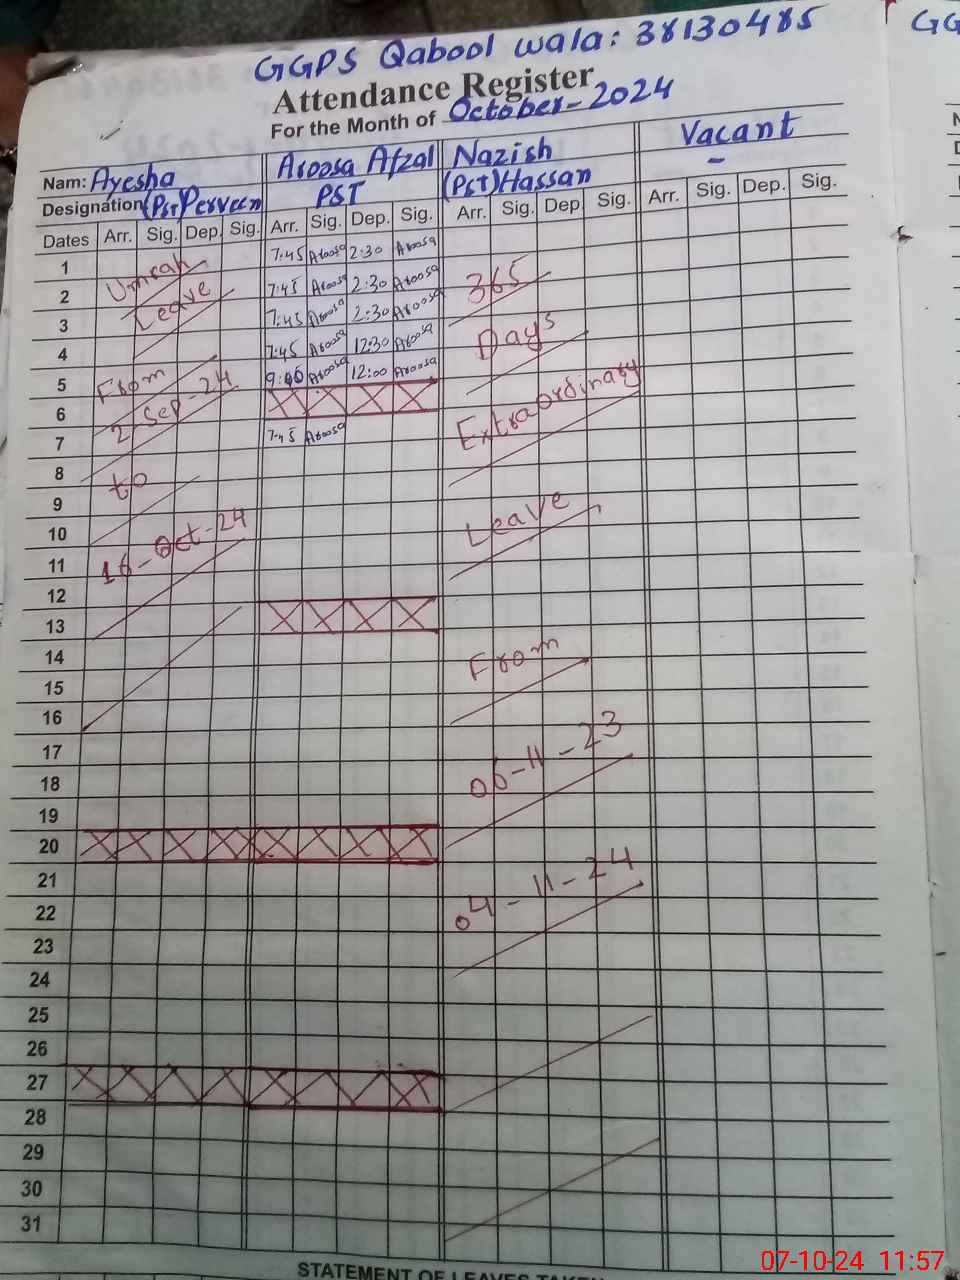 GGPS Qabool wala: 38130485
GG
Attendance Register
For the Month of October-2024
Nam: Ayesha Aroosa Afzal Nazish Vacant
Designation (PST) Perveen PST (PST) Hassan -
Dates Arr. Sig. Dep. Sig. Arr. Sig. Dep. Sig. Arr. Sig. Dep Sig. Arr. Sig. Dep. Sig.
1 Umrah 7:45 Aroosa 2:30 Aroosa
2 Leave 7:45 Aroosa 2:30 Aroosa 365
3 7:45 Aroosa 2:30 Aroosa
4 7:45 Aroosa 12:30 Aroosa Days
5 From Aroosa 12:00 Aroosa
6 2-Sep-24 X X X X Extraordinary
7 7:45 Aroosa
8 to
9 Leave
10
11 16-Oct-24
12
13 X X X X
14 From
15
16
17
18 06-11-23
19
20 X X X X X X X X
21
22 04-11-24
23
24
25
26
27 X X X X X X X X
28
29
30
31
STATEMENT OF LEAVES TAKEN
07-10-24 11:57